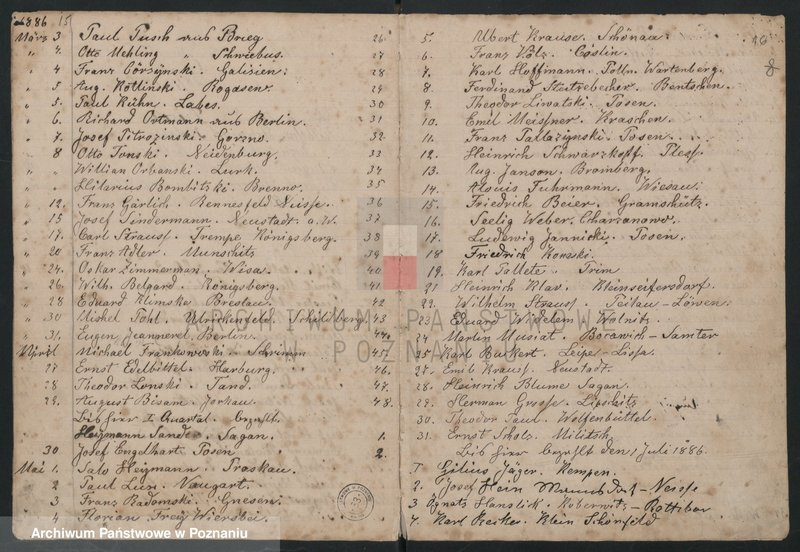 1886 15
März 3 Paul Pusch aus Brieg 26
" 4. Otto Mehling " Schwiebus. 27
" 4 Franz Görsynski. Galizien. 28
" 5 Aug. Kotlinski. Rogasen. 29
" 5. Paul Kühn. Labes. 30
" 6 Richard Ortmann aus Berlin. 31
" 7. Josef Pitrozinski. Gorzno. 32
" 8 Otto Tonski. Neidenburg. 33
" " Willian Orbanski. Lurk. 34
" " Hilarius Bombitzki. Brenno. 35
" 12. Franz Gärlich. Rennesfeld Neisse. 36
" 15 Josef Lindermann. Neustadt a. W. 37
" 17. Carl Strauss. Trempe. Königsberg. 38
" 20 Franz Adler. Munschitz 39
" 24. Oskar Zimmerman. Wisas. 40
" 26 Wilh. Belgard. Königsberg. 41
" 28 Eduard Klimska Breslau. 42
" 30 Michel Pohl. Schildberg. 43
" 31. Eugen Jeannerel. Berlin. 44.
April Michael Frankowski. Schrimm 45.
" 27 Ernst Edelbüttel. Harburg. 46.
" 28 Theodor Lonski. Sand. 47.
" 29. August Bisam. Jorkau. 48.
Bis hier I Quartal. bezahlt.
Heymann Sander. Sagan. 1.
30 Josef Engelhart. Posen 2.
Mai 1. Salo Heymann. Proskau.
" 2 Paul Lion. Vaugart.
" 3 Franz Radomski. Gnesen.
" 4 Florian Frey Wiersbel.
16
8
5. Albert Krause. Schönau.
6. Franz Völz. Cöslin.
7. Karl Hoffmann. Polln. Wartenberg.
8. Ferdinand Bentschen.
9. Theodor Liwatski. Posen.
10. Emil Meissner. Kraschen.
11. Franz Pallaszynski. Posen.
12. Heinrich Schwarzkopf. Pless.
13. Aug. Janson. Bromberg.
14. Alouis Fuhrmann. Wiesau.
15. Friedrich Beier. Gramschütz.
16. Seelig Weber. Charzanowo.
17. Ludewig Jannicki. Posen.
18 Friedrich Kouski.
19. Karl Pallete. Prim
21. Heinrich Klav. Kleinseifersdorf.
22. Wilhelm Strauss. Peilau-Löwen.
23 Eduard Wilhelm. Wollnitz.
24 Martin Musiat. Borowich-Samter
25 Karl Bukert. Leipe-Lissa.
27. Emil Krauss. Neustadt.
28. Heinrich Blume Sagan.
29. Herman Grosse. Lipschitz
30. Theodor Paul. Wolfenbüttel.
31. Ernst Scholz. Militsch.
Bis hier bezahlt den 1 Juli 1886.
1. Gilius Jäger. Kempen.
2. Josef Hein Mannsdorf-Neisse
3 Ignatz Hanslick. Koberwitz-Rattibor
4. Karl Reiker. Klein Schönfeld
ARCHIWUM PAŃSTWOWE
W POZNANIU
Archiwum Państwowe w Poznaniu